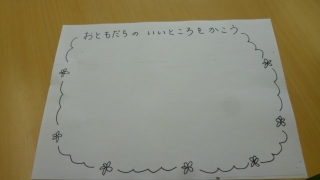 おともだちの いいところを かこう